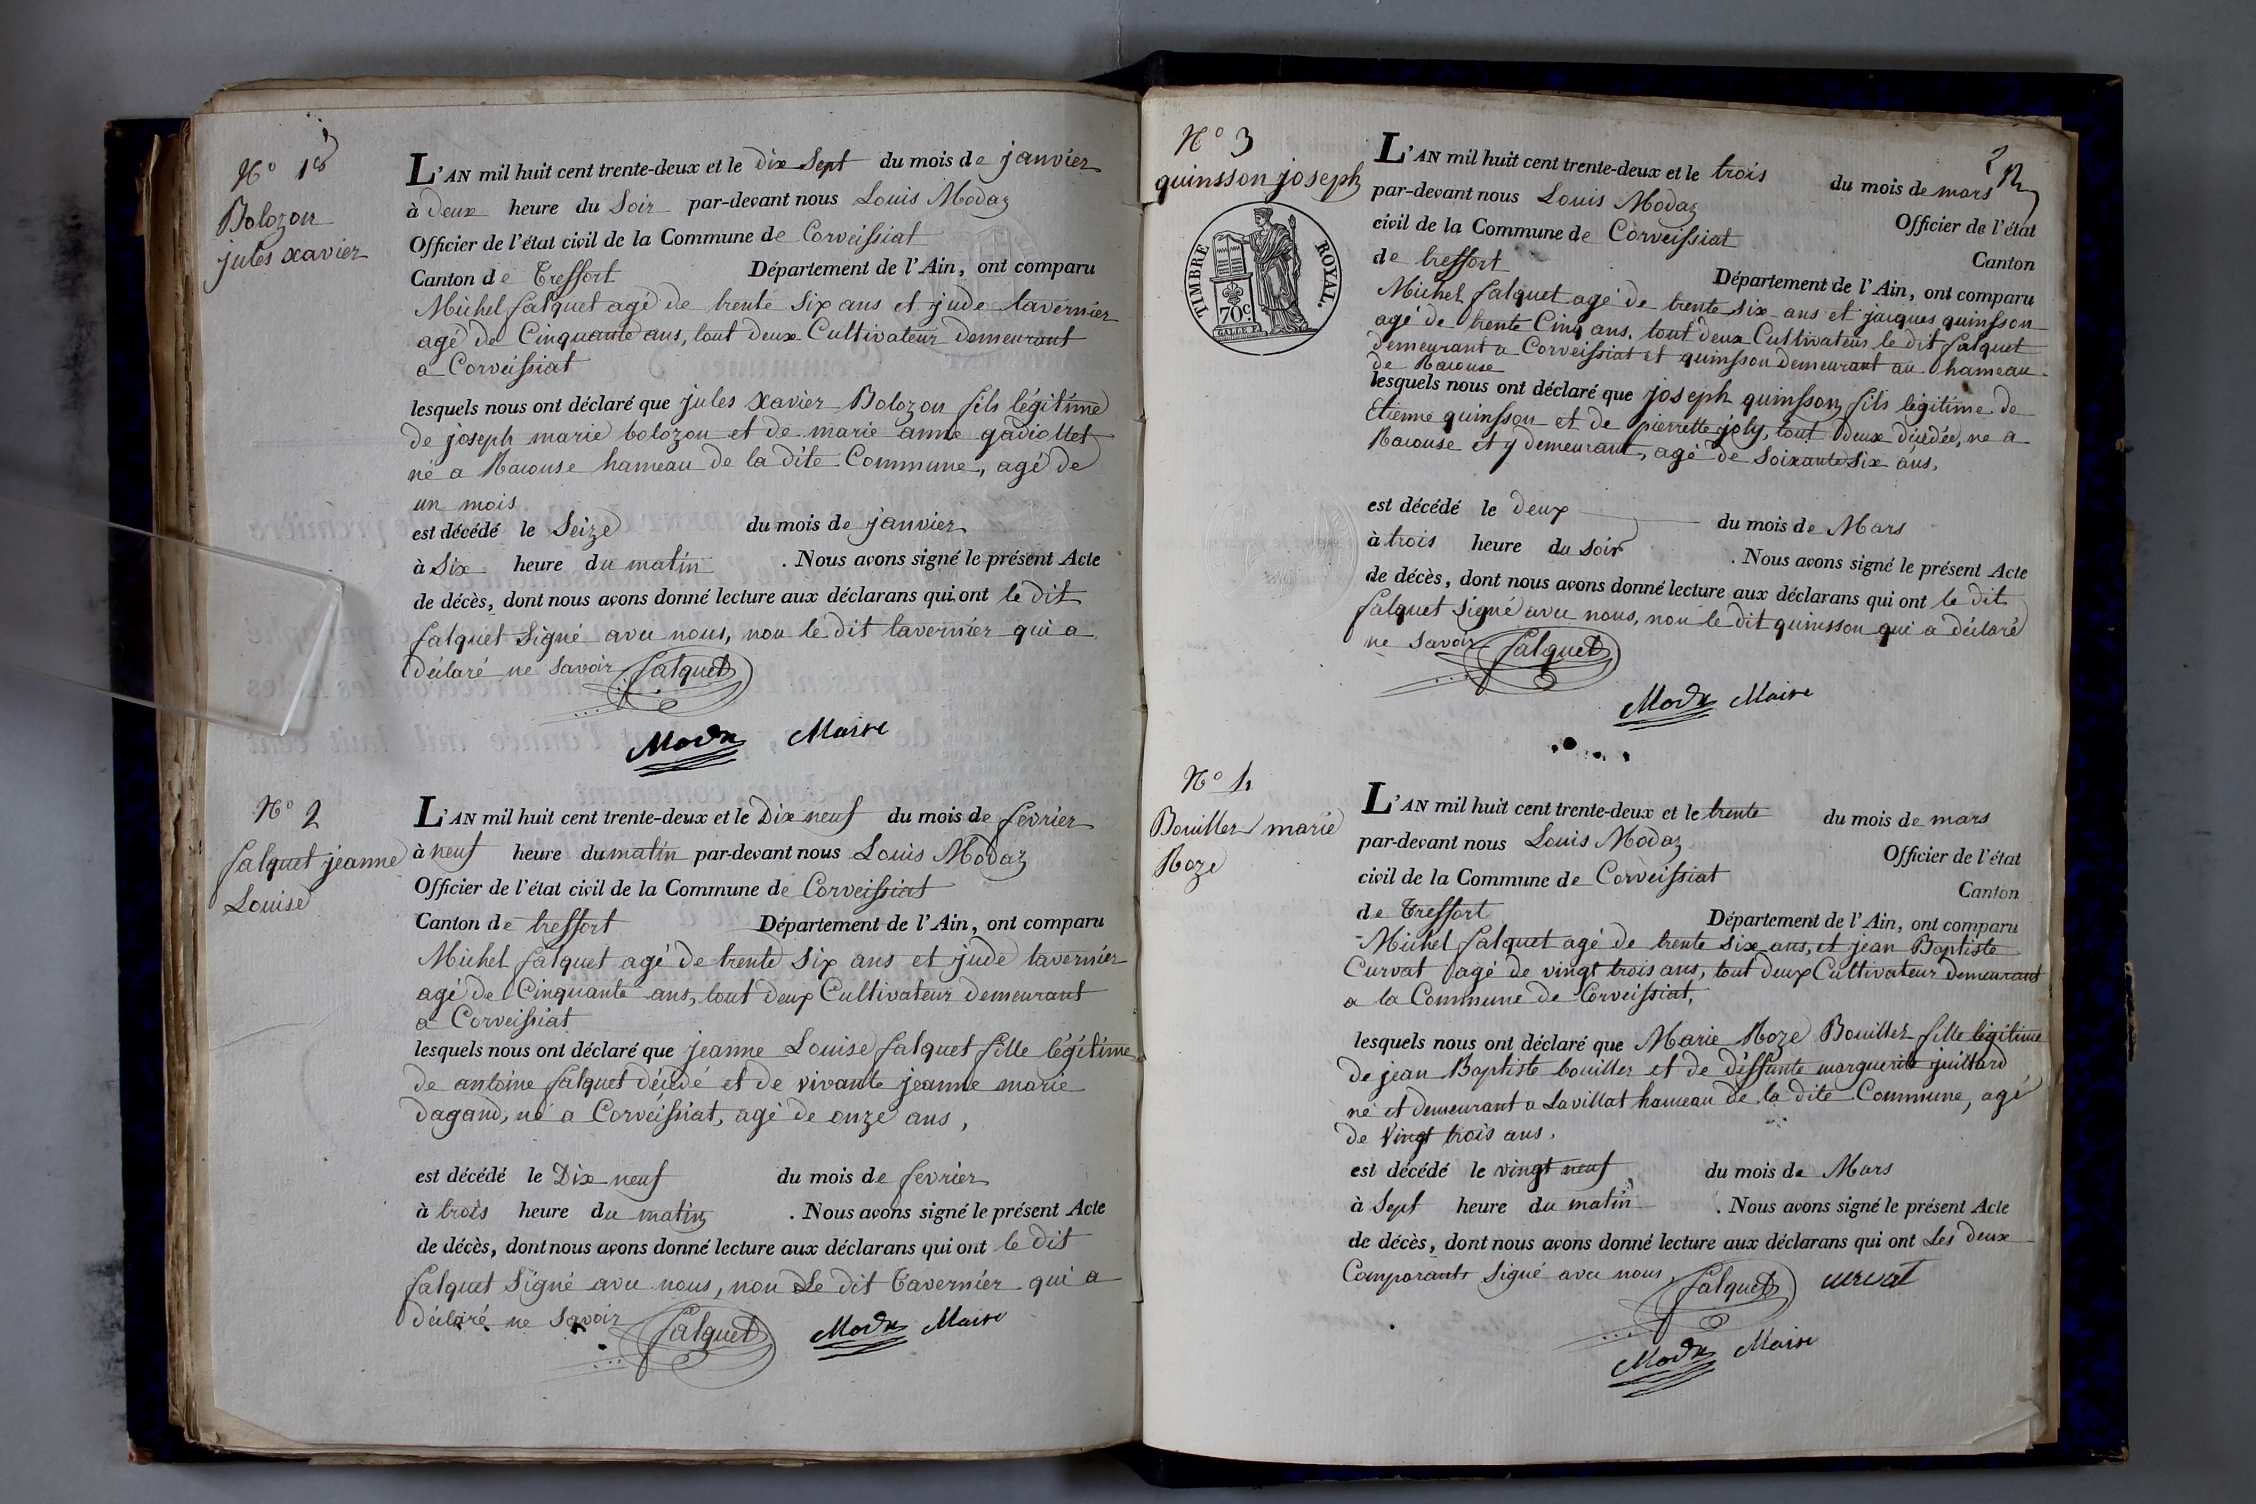 N° 1er
Bolozon
jules xavier
L'AN mil huit cent trente-deux et le dix Sept du mois de janvier
à deux heure du Soir par-devant nous Louis Modaz
Officier de l'état civil de la Commune de Corveissiat
Canton de Treffort Département de l'Ain, ont comparu
Michel falquet agé de trente Six ans et jude tavernier
agé de Cinquante ans, tout deux Cultivateur demeurant
a Corveissiat
lesquels nous ont déclaré que jules Xavier Bolozon fils légitime
de joseph marie bolozon et de marie anne gadiollet
né a Racouse hameau de la dite Commune, agé de
un mois
est décédé le Seize du mois de janvier
à Six heure du matin . Nous avons signé le présent Acte
de décès, dont nous avons donné lecture aux déclarans qui ont le dit
falquet Signé avec nous, non le dit tavernier qui a
déclaré ne Savoir falquet
Modaz Maire
N° 2
falquet jeanne
Louise
L'AN mil huit cent trente-deux et le Dix neuf du mois de fevrier
à neuf heure du matin par-devant nous Louis Modaz
Officier de l'état civil de la Commune de Corveissiat
Canton de treffort Département de l'Ain, ont comparu
Michel falquet agé de trente Six ans et jude tavernier
agé de Cinquante ans, tout deux Cultivateur demeurant
a Corveissiat
lesquels nous ont déclaré que jeanne Louise falquet fille légitime
de antoine falquet décédé et de vivante jeanne marie
dagand, né a Corveissiat, agé de onze ans,
est décédé le Dix neuf du mois de fevrier
à trois heure du matin . Nous avons signé le présent Acte
de décès, dont nous avons donné lecture aux déclarans qui ont le dit
falquet Signé avec nous, non Le dit Tavernier qui a
déclaré ne Savoir falquet Modaz Maire
N° 3
quinsson joseph
TIMBRE ROYAL.
70c.
L'AN mil huit cent trente-deux et le trois du mois de mars
par-devant nous Louis Modaz Officier de l'état
civil de la Commune de Corveissiat Canton
de treffort Département de l'Ain, ont comparu
Michel falquet agé de trente six ans et jacques quinsson
agé de trente Cinq ans, tout deux Cultivateurs le dit falquet
demeurant a Corveissiat et quinsson demeurant au hameau
de Racouse
lesquels nous ont déclaré que joseph quinsson fils légitime de
Etienne quinsson et de pierrette joly, tout deux décédée, né a
Racouse et y demeurant, agé de Soixante Six ans,
est décédé le deux du mois de Mars
à trois heure du soir . Nous avons signé le présent Acte
de décès, dont nous avons donné lecture aux déclarans qui ont le dit
falquet Signé avec nous, non le dit quinsson qui a déclaré
ne Savoir falquet
Modaz Maire
N° 4
Bouiller marie
Roze
L'AN mil huit cent trente-deux et le trente du mois de mars
par-devant nous Louis Modaz Officier de l'état
civil de la Commune de Corveissiat Canton
de Treffort Département de l'Ain, ont comparu
Michel falquet agé de trente Six ans, et jean Baptiste
Curvat agé de vingt trois ans, tout deux Cultivateur demeurant
a la Commune de Corveissiat,
lesquels nous ont déclaré que Marie Roze Bouiller fille légitime
de jean Baptiste bouiller et de deffunte marguerite juillard
né et demeurant a Lavillat hameau de la dite Commune, agé
de Vingt trois ans.
est décédé le vingt neuf du mois de Mars
à Sept heure du matin . Nous avons signé le présent Acte
de décès, dont nous avons donné lecture aux déclarans qui ont Les deux
Comparants Signé avec nous falquet curvat
Modaz Maire